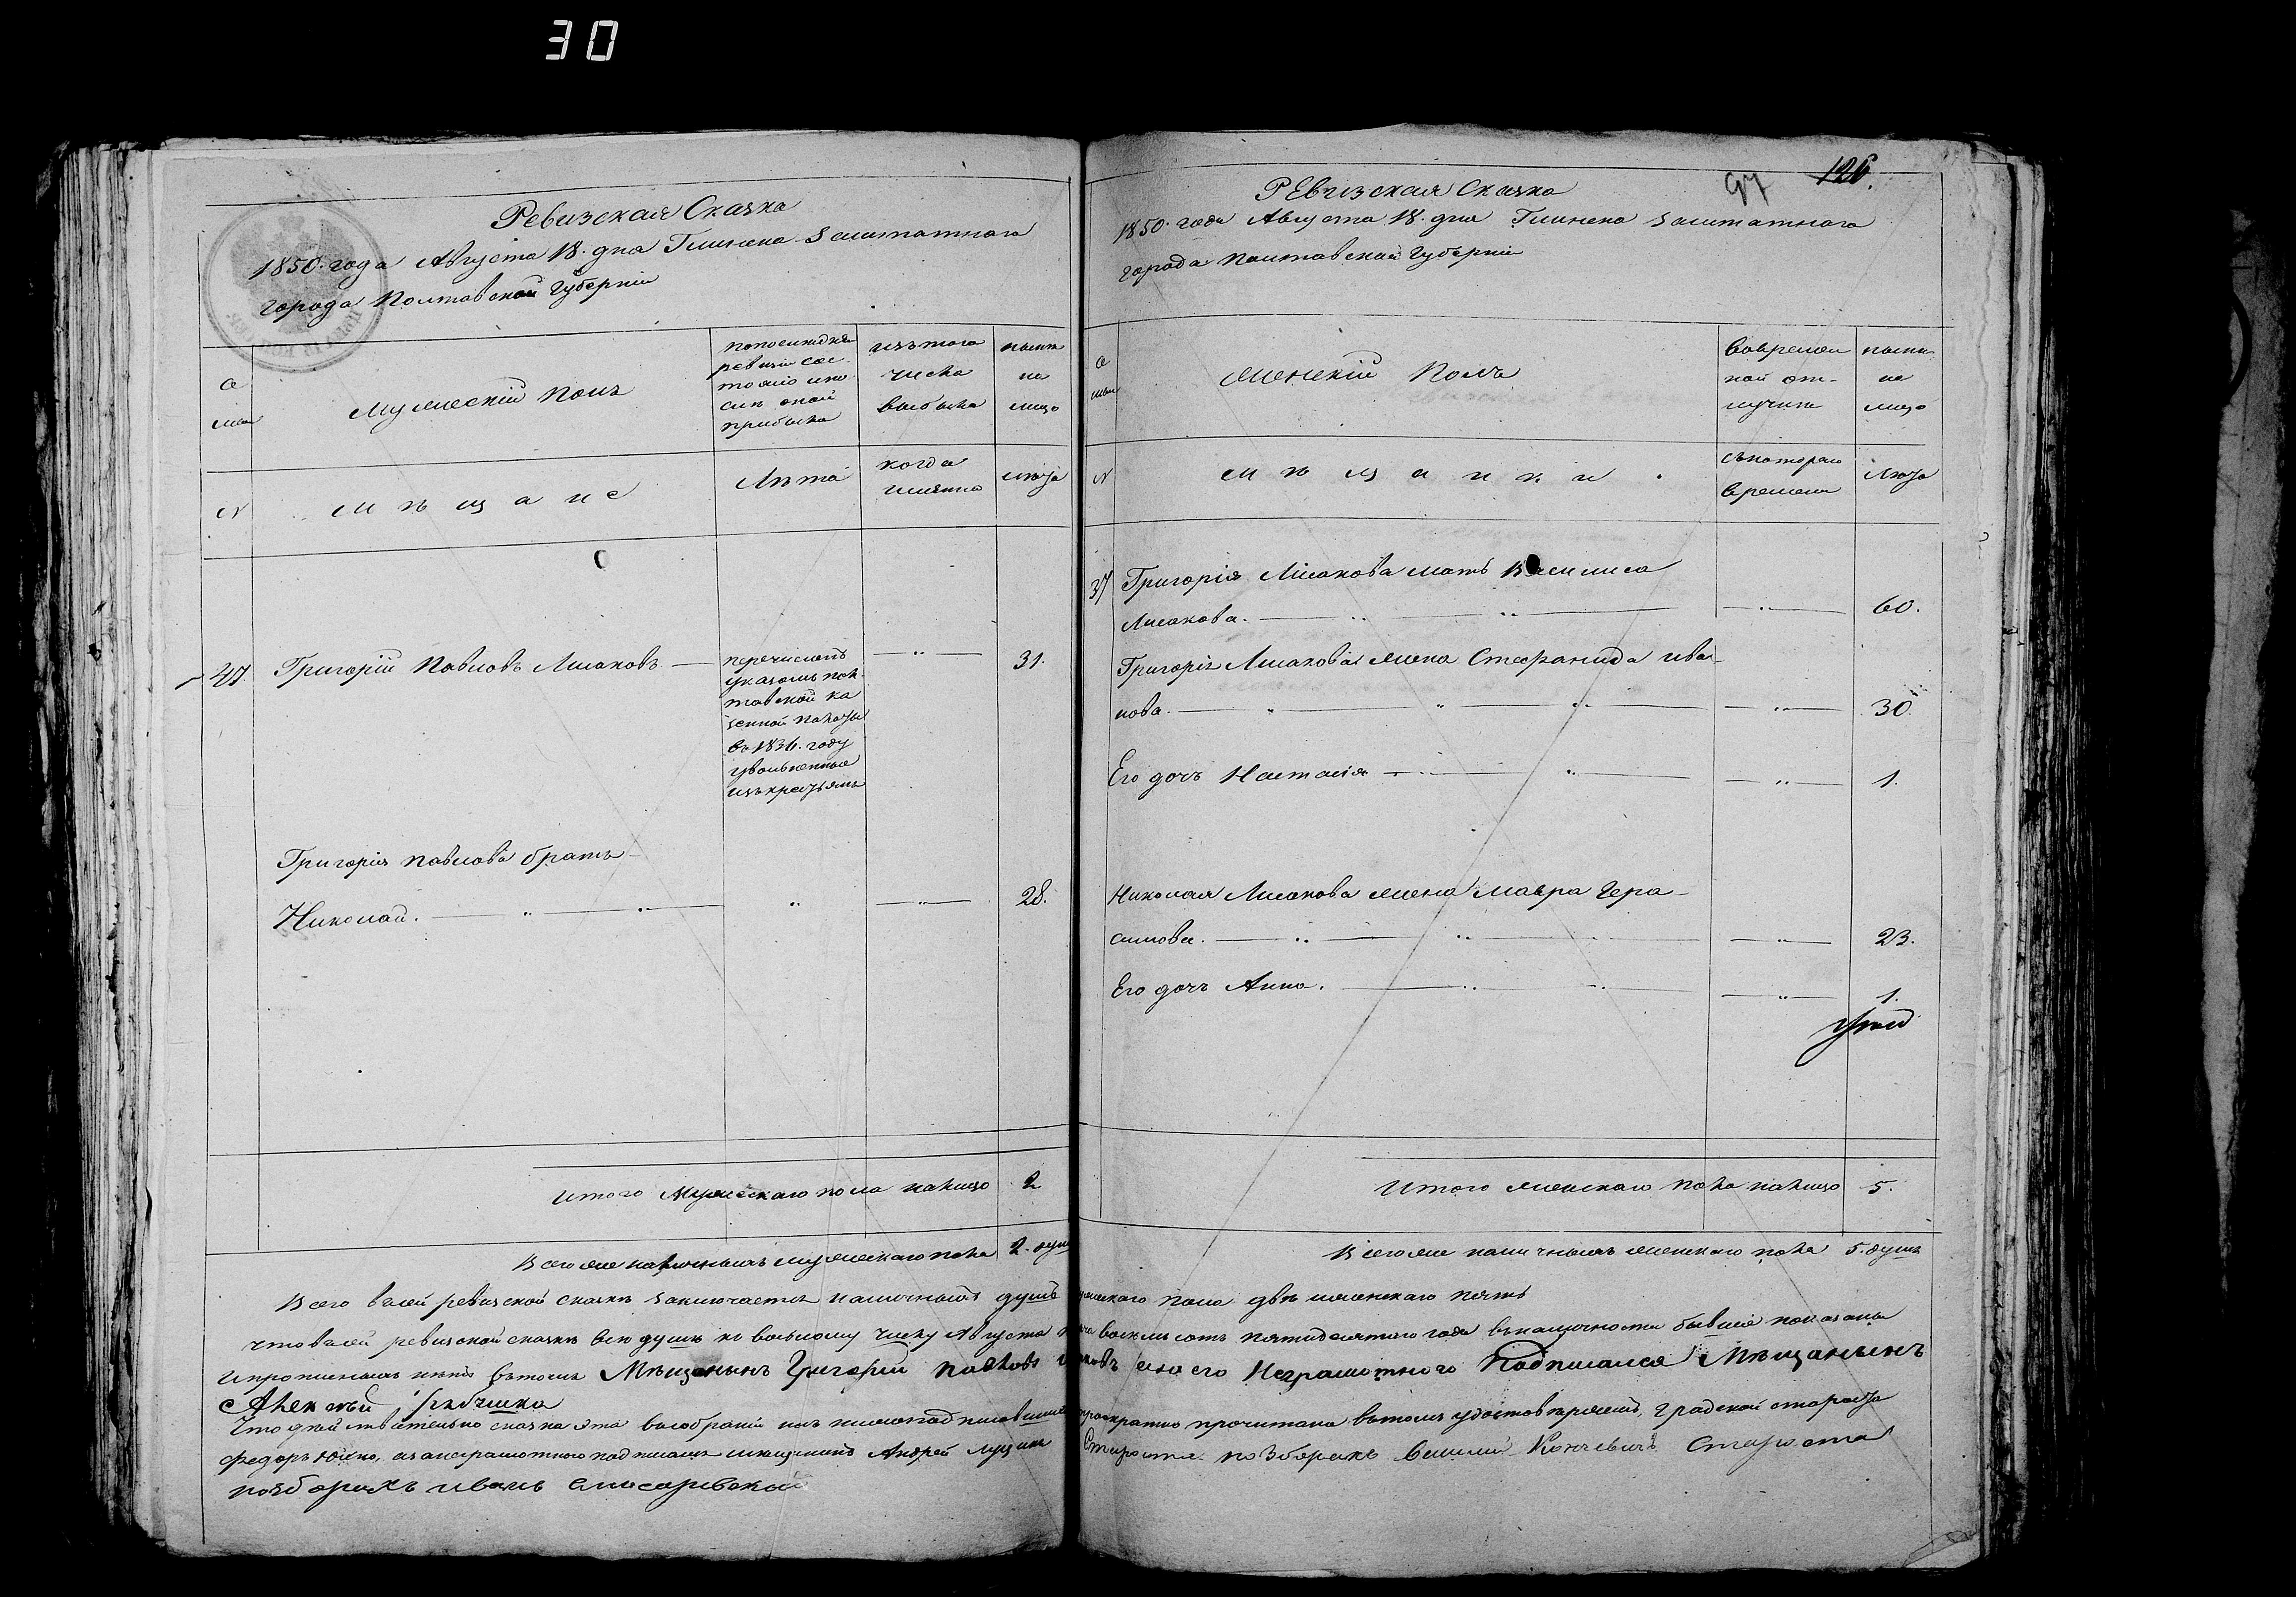 30
Ревизская Сказка
1850. года Августа 18. дня Глинска Заштатнаго
города Полтавской Губерніи
Се
мьи
Мужескій Полъ
По последней
ревизіи сос-
тояло и по-
слѣ оной
прибыло
изъ того
числа
выбыло
нынѣ
на
лицо
N
Мѣщане
Лѣта
когда
именно
Лѣта
47
Григорій Павловъ Лисаковъ
перечисленъ
указомъ Пол-
тавской Ка
зенной Палаты
въ 1836. году
уволенные
изъ крестьянъ
31.
Григорія Павлова братъ
Николай.
28.
Итого Мужескаго пола налицо 2
Всего же наличныхъ мужескаго пола 2. душ
97
126.
Ревизская Сказка
1850. года Августа 18. дня Глинска Заштатнаго
города Полтавской Губерніи
Се
мьи
Женскій Полъ
Во времен
ной от-
лучкѣ
нынѣ
на
лицо
N
Мѣщанки.
съ котораго
времени
Лѣта
37
Григорія Лисакова мать Василиса
Лисакова.
60.
Григорія Лисакова жена Стефанида Ива-
нова.
30.
Его дочь Настасія
1.
Николая Лисакова жена Мавра Гера-
симова.
23.
Его дочь Анна.
1.
Итого женскаго пола налицо 5.
Всего же наличныхъ женскаго пола 5. душъ
Всего в сей ревизской сказкѣ заключается наличныхъ душъ мужескаго пола двѣ женскаго пять
что в сей ревизской сказкѣ всѣ души къ восьмому числу Августа тысяча восемьсотъ пятидесятаго года въ наличности бывшіе показаны
и прописныхъ нѣтъ въ томъ Мѣщанинъ Григорій Павловъ Лисаковъ а за его Неграмотного Подписался Мѣщанинъ
Алексѣй
Что дѣйствительно сказка эта прочитана въ томъ удостовѣряемъ, градской староста
Федоръ а за неграмотного подписался мѣщанинъ Андрей Староста по Зборахъ Василій Староста
по зборахъ Иванъ Слюсаревскій